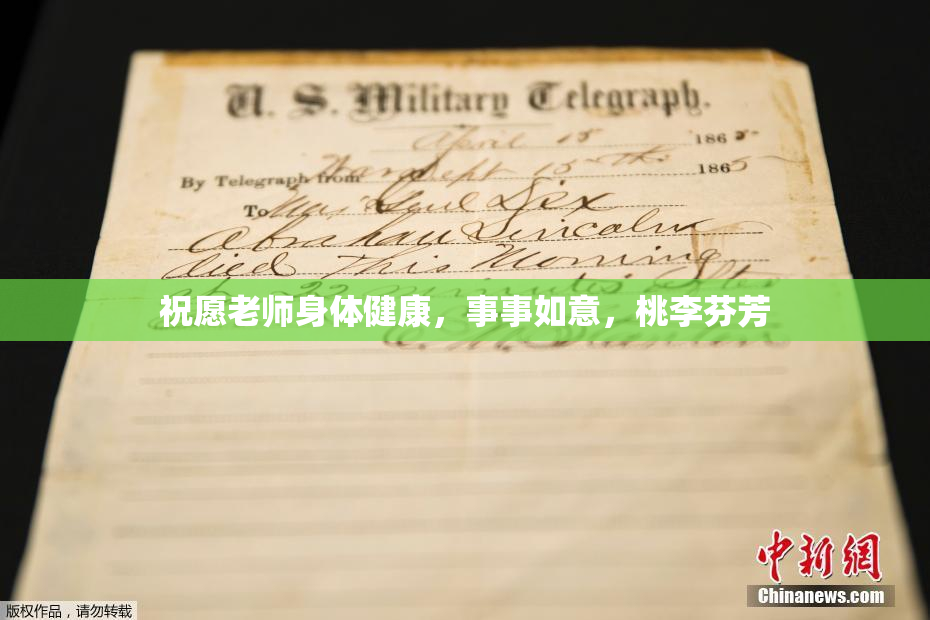 U. S. Military Telegraph.
April 15 1865
By Telegraph from War Dept 15th 1865
To Maj Genl Dix
Abraham Lincoln
died This Morning
at 22 minutes after
祝愿老师身体健康，事事如意，桃李芬芳
E. M. Stanton
中新网
Chinanews.com
版权作品，请勿转载